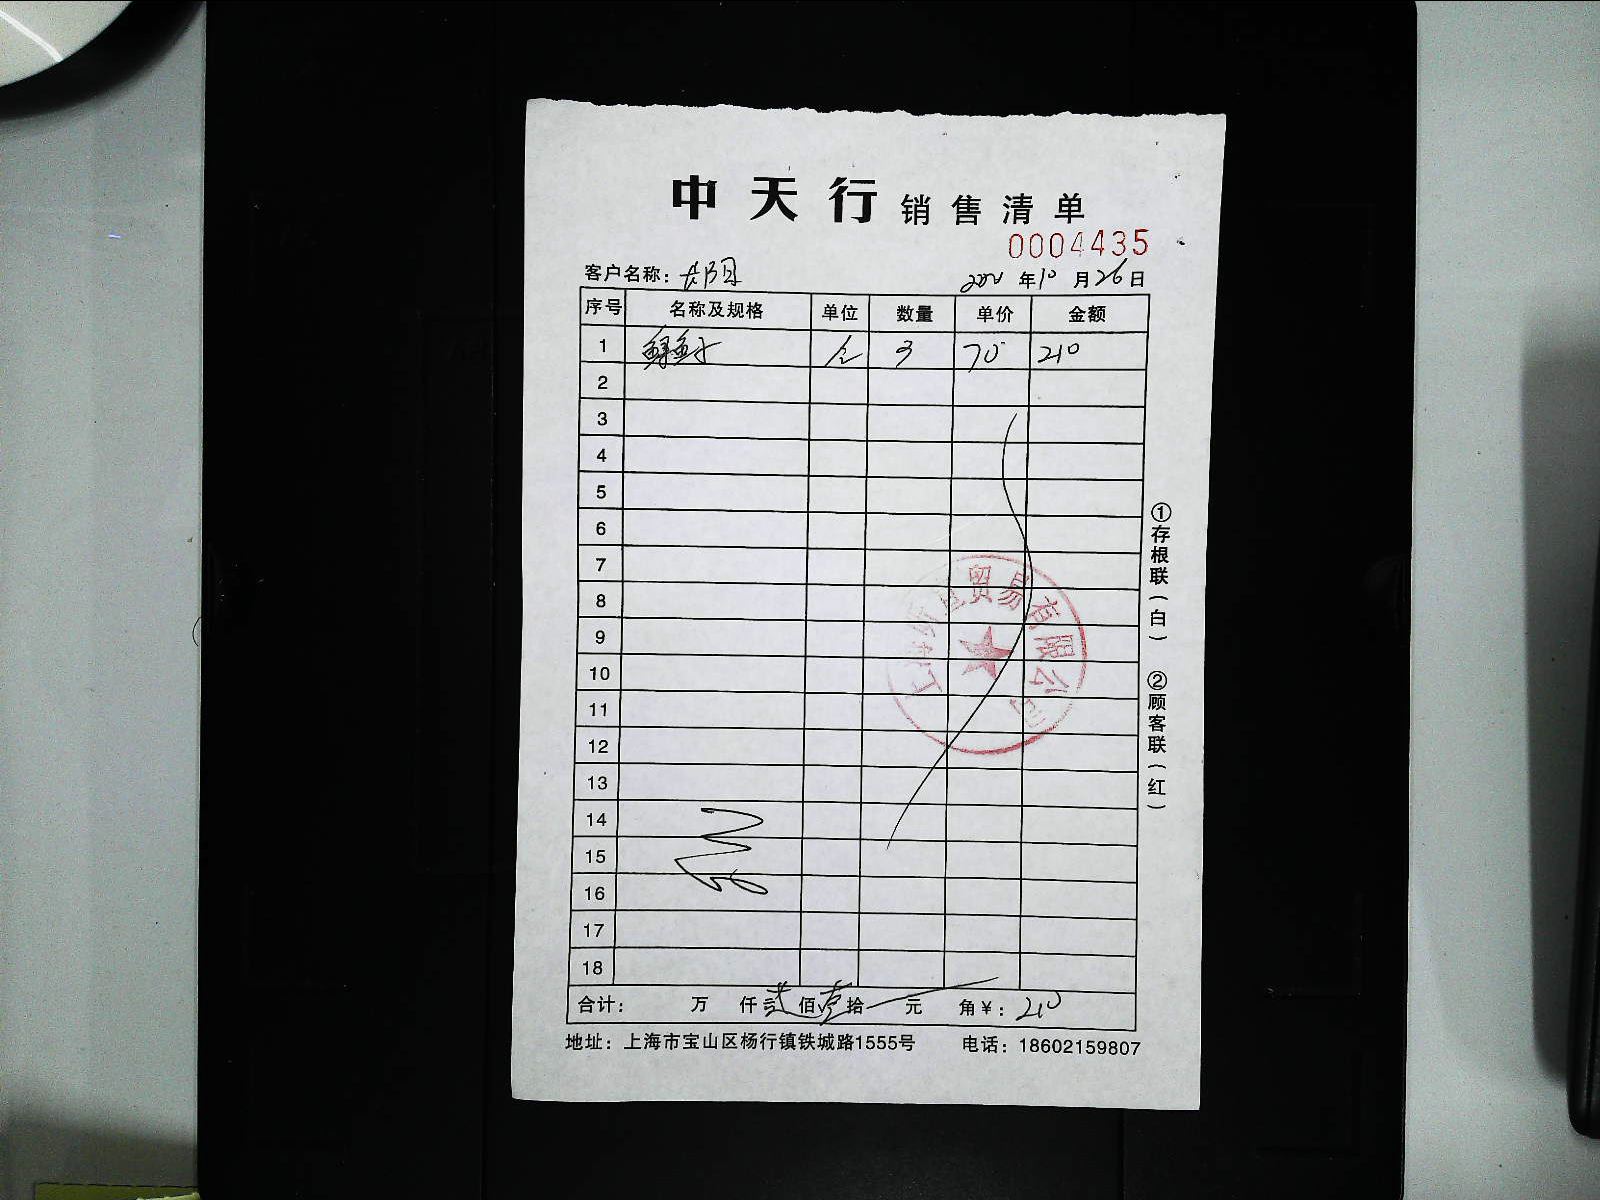 中天行 销售清单
0004435
客户名称： 年10月26日
序号 名称及规格 单位 数量 单价 金额
1 3 70 210
2
3
4
5
6
7
8
9
10
11
12
13
14
15
16
17
18
合计： 万 仟贰佰壹拾 元 角¥：210
地址：上海市宝山区杨行镇铁城路1555号 电话：18602159807
①存根联（白）
②顾客联（红）
贸易有限公司